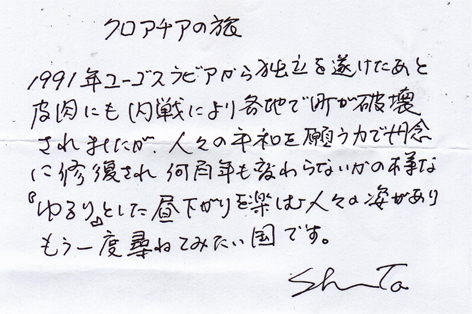 クロアチアの旅
1991年ユーゴスラビアから独立を遂げたあと
皮肉にも内戦により各地で町が破壊
されましたが、人々の平和を願う力で丹念
に修復され何百年も変わらないかの様な
『ゆるり』とした昼下がりを楽しむ人々の姿があり
もう一度尋ねてみたい国です。